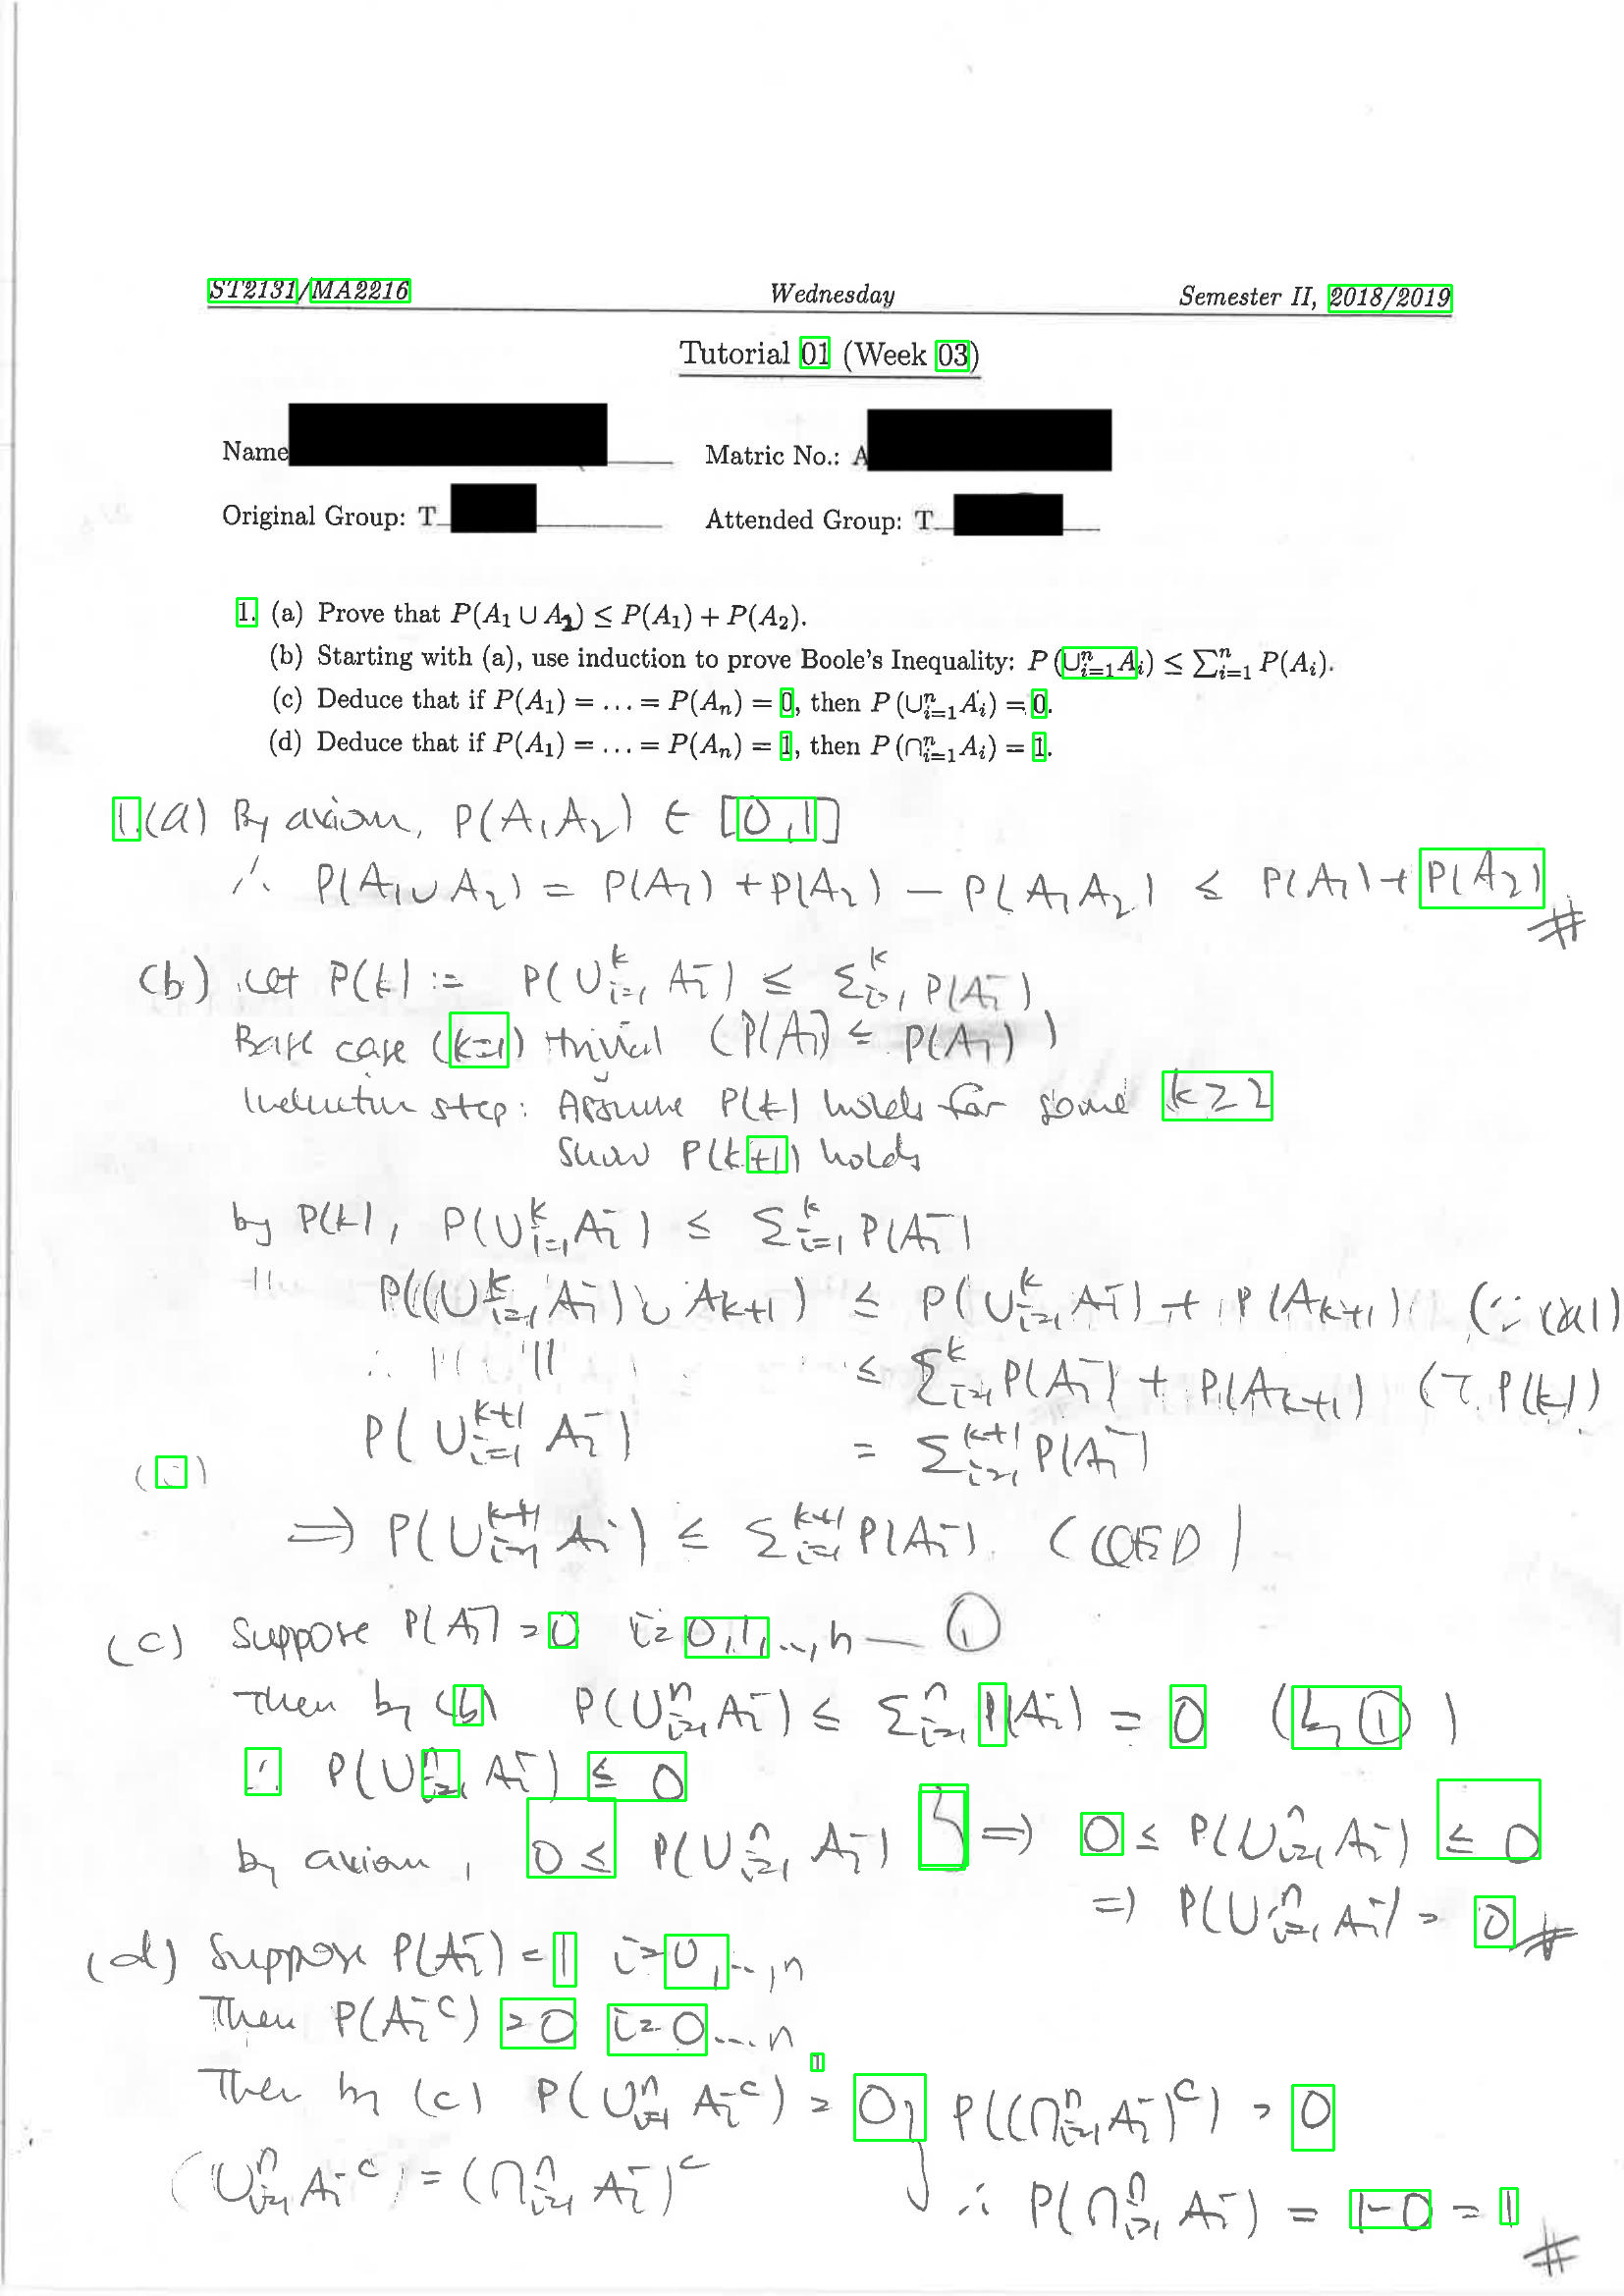 ST2131/MA2216 Wednesday Semester II, 2018/2019
Tutorial 01 (Week 03)
Name Matric No.: A
Original Group: T Attended Group: T
1. (a) Prove that P(A₁ ∪ A₂) ≤ P(A₁) + P(A₂).
(b) Starting with (a), use induction to prove Boole's Inequality: P (∪ⁿᵢ₌₁Aᵢ) ≤ ∑ⁿᵢ₌₁ P(Aᵢ).
(c) Deduce that if P(A₁) = … = P(Aₙ) = 0, then P (∪ⁿᵢ₌₁Aᵢ) = 0.
(d) Deduce that if P(A₁) = … = P(Aₙ) = 1, then P (∩ⁿᵢ₌₁Aᵢ) = 1.
1.(a) By axiom, P(A₁A₂) ∈ [0,1]
∴ P(A₁∪A₂) = P(A₁) + P(A₂) − P(A₁A₂) ≤ P(A₁) + P(A₂) #
(b) Let P(k) := P(∪ᵏᵢ₌₁ Aᵢ) ≤ Σᵏᵢ₌₁ P(Aᵢ)
Base case (k=1) trivial (P(A₁) ≤ P(A₁))
Induction step: Assume P(k) holds for some k≥2
Show P(k+1) holds
by P(k), P(∪ᵏᵢ₌₁Aᵢ) ≤ Σᵏᵢ₌₁ P(Aᵢ)
P((∪ᵏᵢ₌₁ Aᵢ) ∪ Aₖ₊₁) ≤ P(∪ᵏᵢ₌₁ Aᵢ) + P(Aₖ₊₁) (∵ (a))
∥ ≤ Σᵏᵢ₌₁ P(Aᵢ) + P(Aₖ₊₁) (∵ P(k))
P(∪ᵏ⁺¹ᵢ₌₁ Aᵢ) = Σᵏ⁺¹ᵢ₌₁ P(Aᵢ)
⇒ P(∪ᵏ⁺¹ᵢ₌₁ Aᵢ) ≤ Σᵏ⁺¹ᵢ₌₁ P(Aᵢ). (QED)
(c) Suppose P(Aᵢ) = 0 i=0,1,..,n — ①
Then by (b) P(∪ⁿᵢ₌₁ Aᵢ) ≤ Σⁿᵢ₌₁ P(Aᵢ) = 0 (by ①)
∴ P(∪ⁿᵢ₌₁ Aᵢ) ≤ 0
by axiom, 0 ≤ P(∪ⁿᵢ₌₁ Aᵢ) } ⇒ 0 ≤ P(∪ⁿᵢ₌₁ Aᵢ) ≤ 0
⇒ P(∪ⁿᵢ₌₁ Aᵢ) = 0 #
(d) Suppose P(Aᵢ) = 1 i=0,..,n
Then P(Aᵢᶜ) = 0 i=0...n
Then by (c) P(∪ⁿᵢ₌₁ Aᵢᶜ) = 0, P((∩ⁿᵢ₌₁ Aᵢ)ᶜ) = 0
(∪ⁿᵢ₌₁ Aᵢᶜ) = (∩ⁿᵢ₌₁ Aᵢ)ᶜ ∴ P(∩ⁿᵢ₌₁ Aᵢ) = 1−0 = 1 #